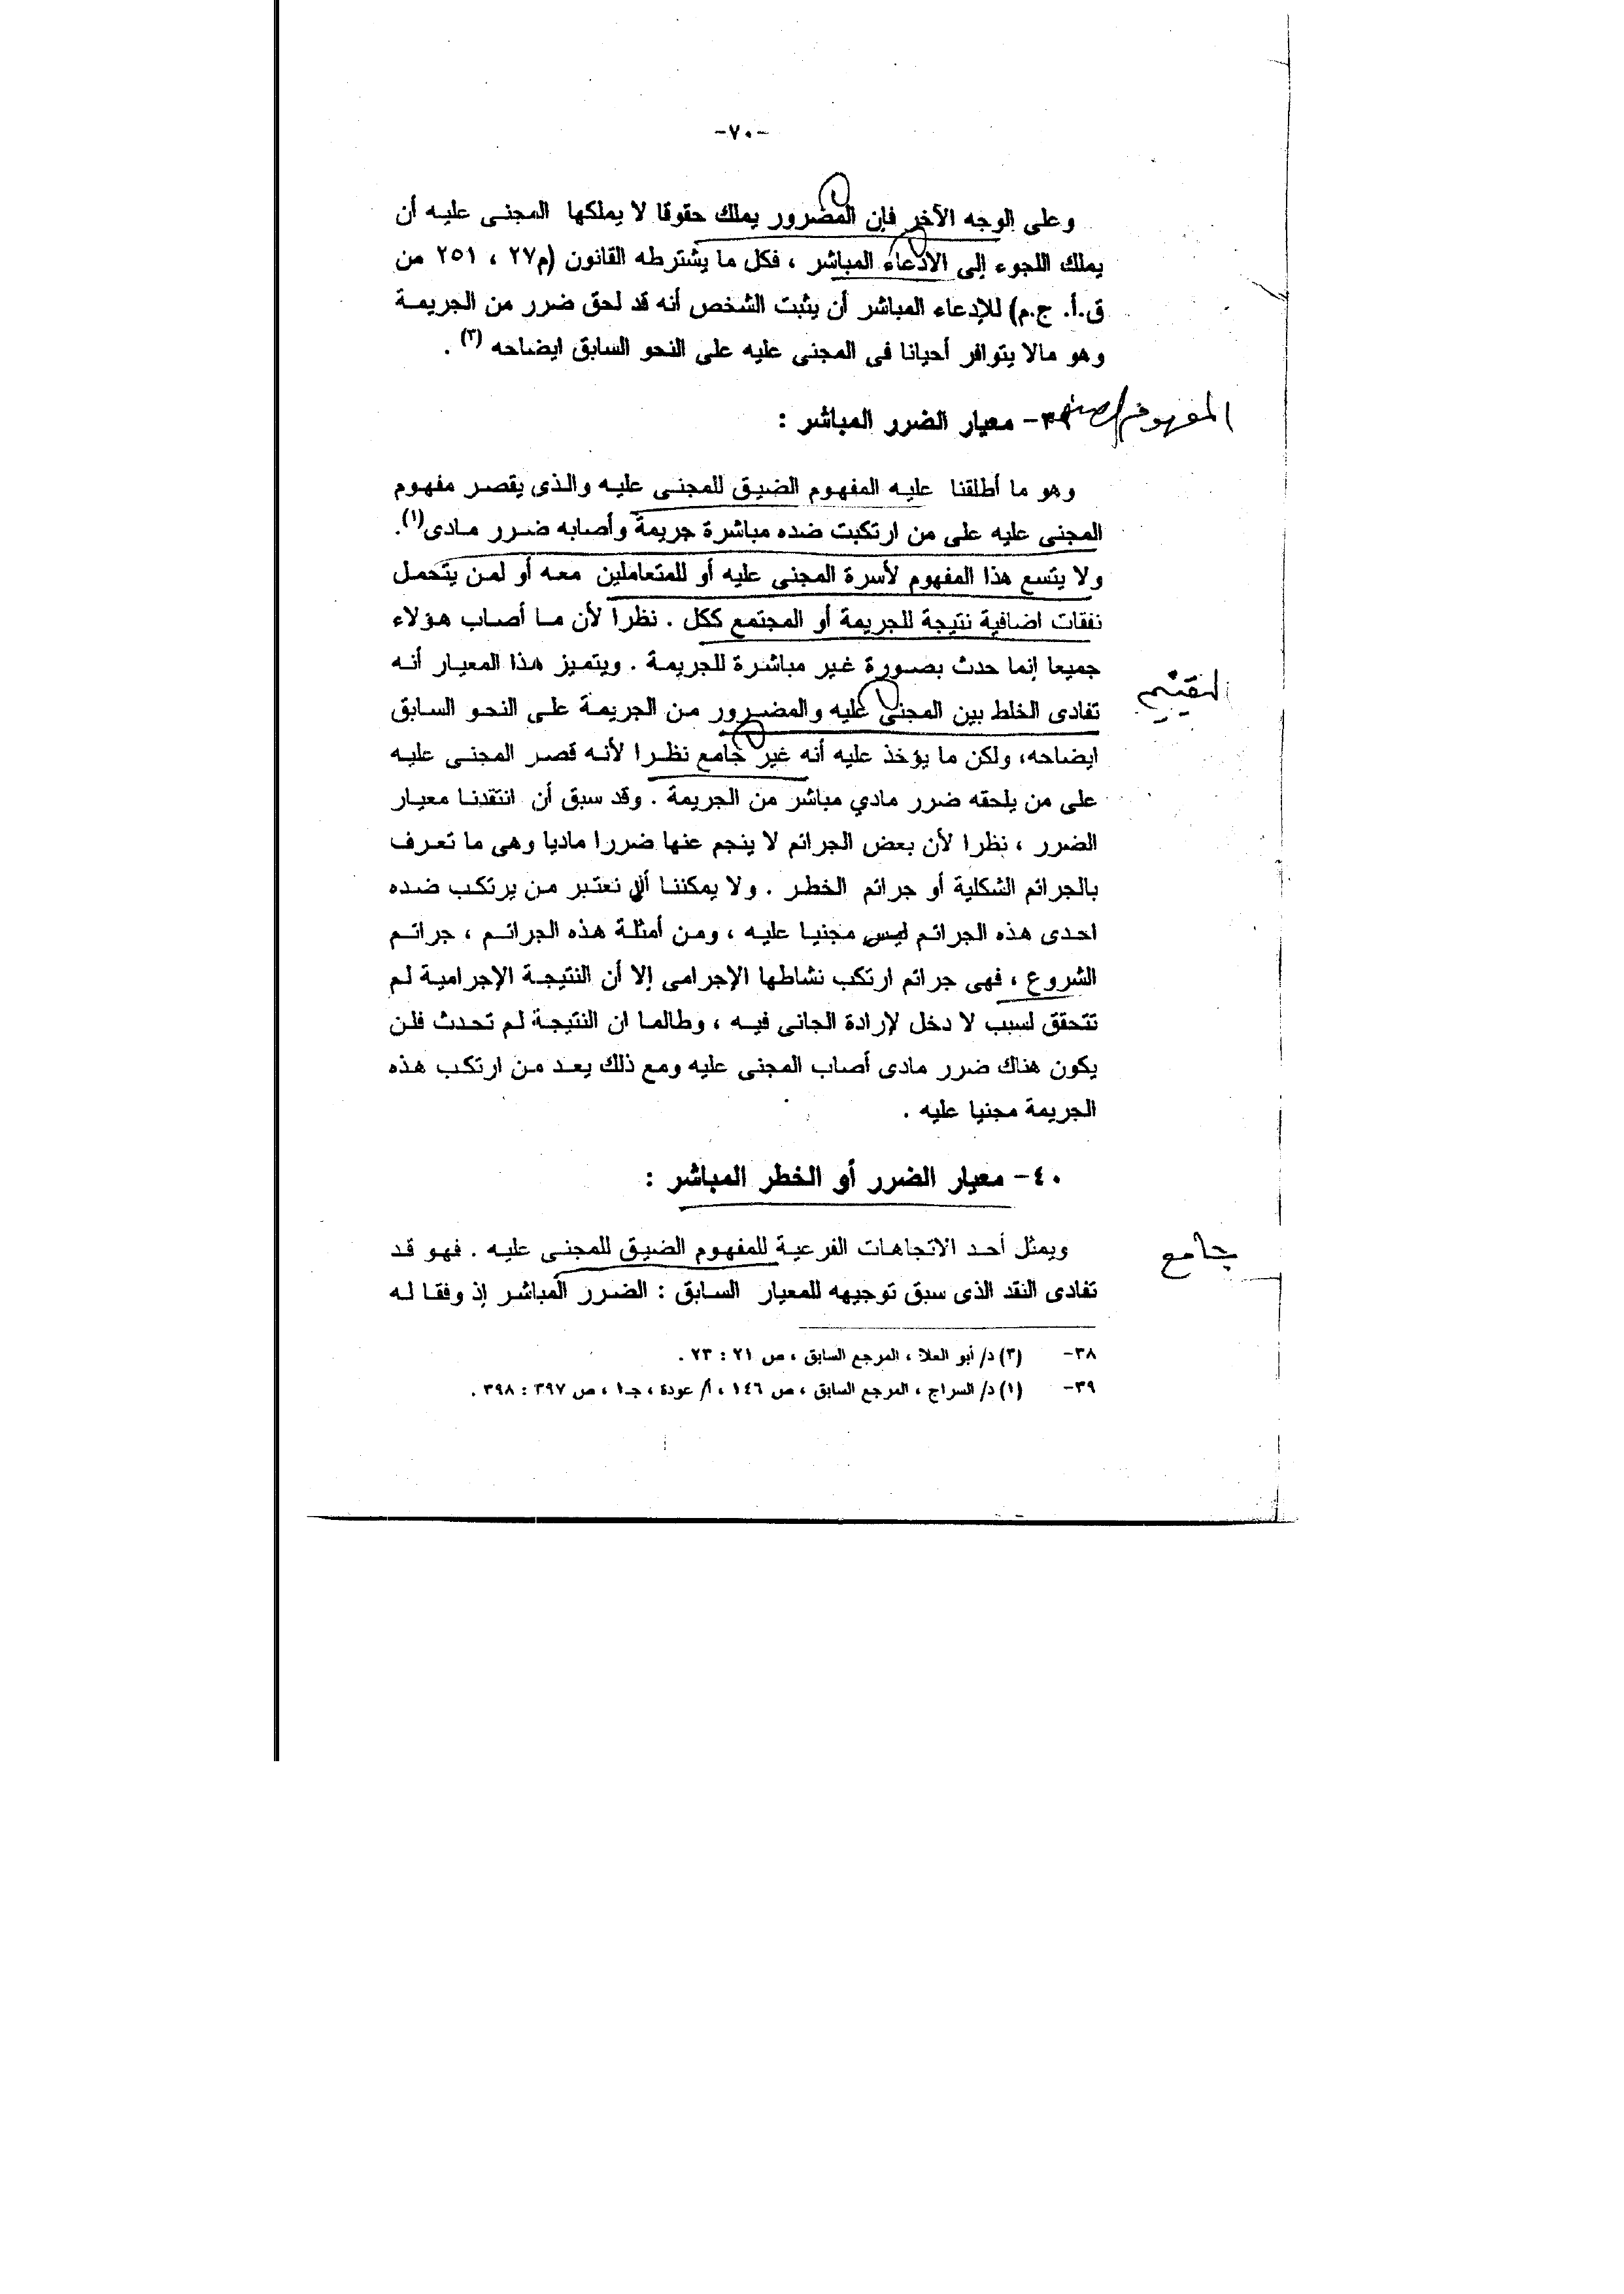 -٧٠-
وعلى الوجه الآخر فإن المضرور يملك حقوقا لا يملكها المجنى عليه أن
يملك اللجوء إلى الادعاء المباشر ، فكل ما يشترطه القانون (م٢٧ ، ٢٥١ من
ق.أ. ج.م) للإدعاء المباشر أن يثبت الشخص أنه قد لحق ضرر من الجريمة
وهو مالا يتوافر أحيانا فى المجنى عليه على النحو السابق ايضاحه (٣) .
المفهوم الضيق
٣٩- معيار الضرر المباشر :
وهو ما أطلقنا عليه المفهوم الضيق للمجنى عليه والذى يقصر مفهوم
المجنى عليه على من ارتكبت ضده مباشرة جريمة وأصابه ضرر مادى(١).
ولا يتسع هذا المفهوم لأسرة المجنى عليه أو للمتعاملين معه أو لمن يتحمل
نفقات اضافية نتيجة للجريمة أو المجتمع ككل . نظرا لأن ما أصاب هؤلاء
جميعا إنما حدث بصورة غير مباشرة للجريمة . ويتميز هذا المعيار أنه
التقييم
تفادى الخلط بين المجنى عليه والمضرور من الجريمة على النحو السابق
ايضاحه، ولكن ما يؤخذ عليه أنه غير جامع نظرا لأنه قصر المجنى عليه
على من يلحقه ضرر مادي مباشر من الجريمة . وقد سبق أن انتقدنا معيار
الضرر ، نظرا لأن بعض الجرائم لا ينجم عنها ضررا ماديا وهى ما تعرف
بالجرائم الشكلية أو جرائم الخطر . ولا يمكننا أن نعتبر من يرتكب ضده
احدى هذه الجرائم ليس مجنيا عليه ، ومن أمثلة هذه الجرائم ، جرائم
الشروع ، فهى جرائم ارتكب نشاطها الإجرامى إلا أن النتيجة الإجرامية لم
تتحقق لسبب لا دخل لإرادة الجانى فيه ، وطالما ان النتيجة لم تحدث فلن
يكون هناك ضرر مادى أصاب المجنى عليه ومع ذلك يعد من ارتكب هذه
الجريمة مجنيا عليه .
٤٠- معيار الضرر أو الخطر المباشر :
ويمثل أحد الاتجاهات الفرعية للمفهوم الضيق للمجنى عليه . فهو قد
جامع
تفادى النقد الذى سبق توجيهه للمعيار السابق : الضرر المباشر إذ وفقا له
٣٨- (٣) د/ أبو العلا ، المرجع السابق ، ص ٢١ : ٢٣ .
٣٩- (١) د/ السراج ، المرجع السابق ، ص ١٤٦ ، أ/ عودة ، جـ١ ، ص ٣٩٧ : ٣٩٨ .